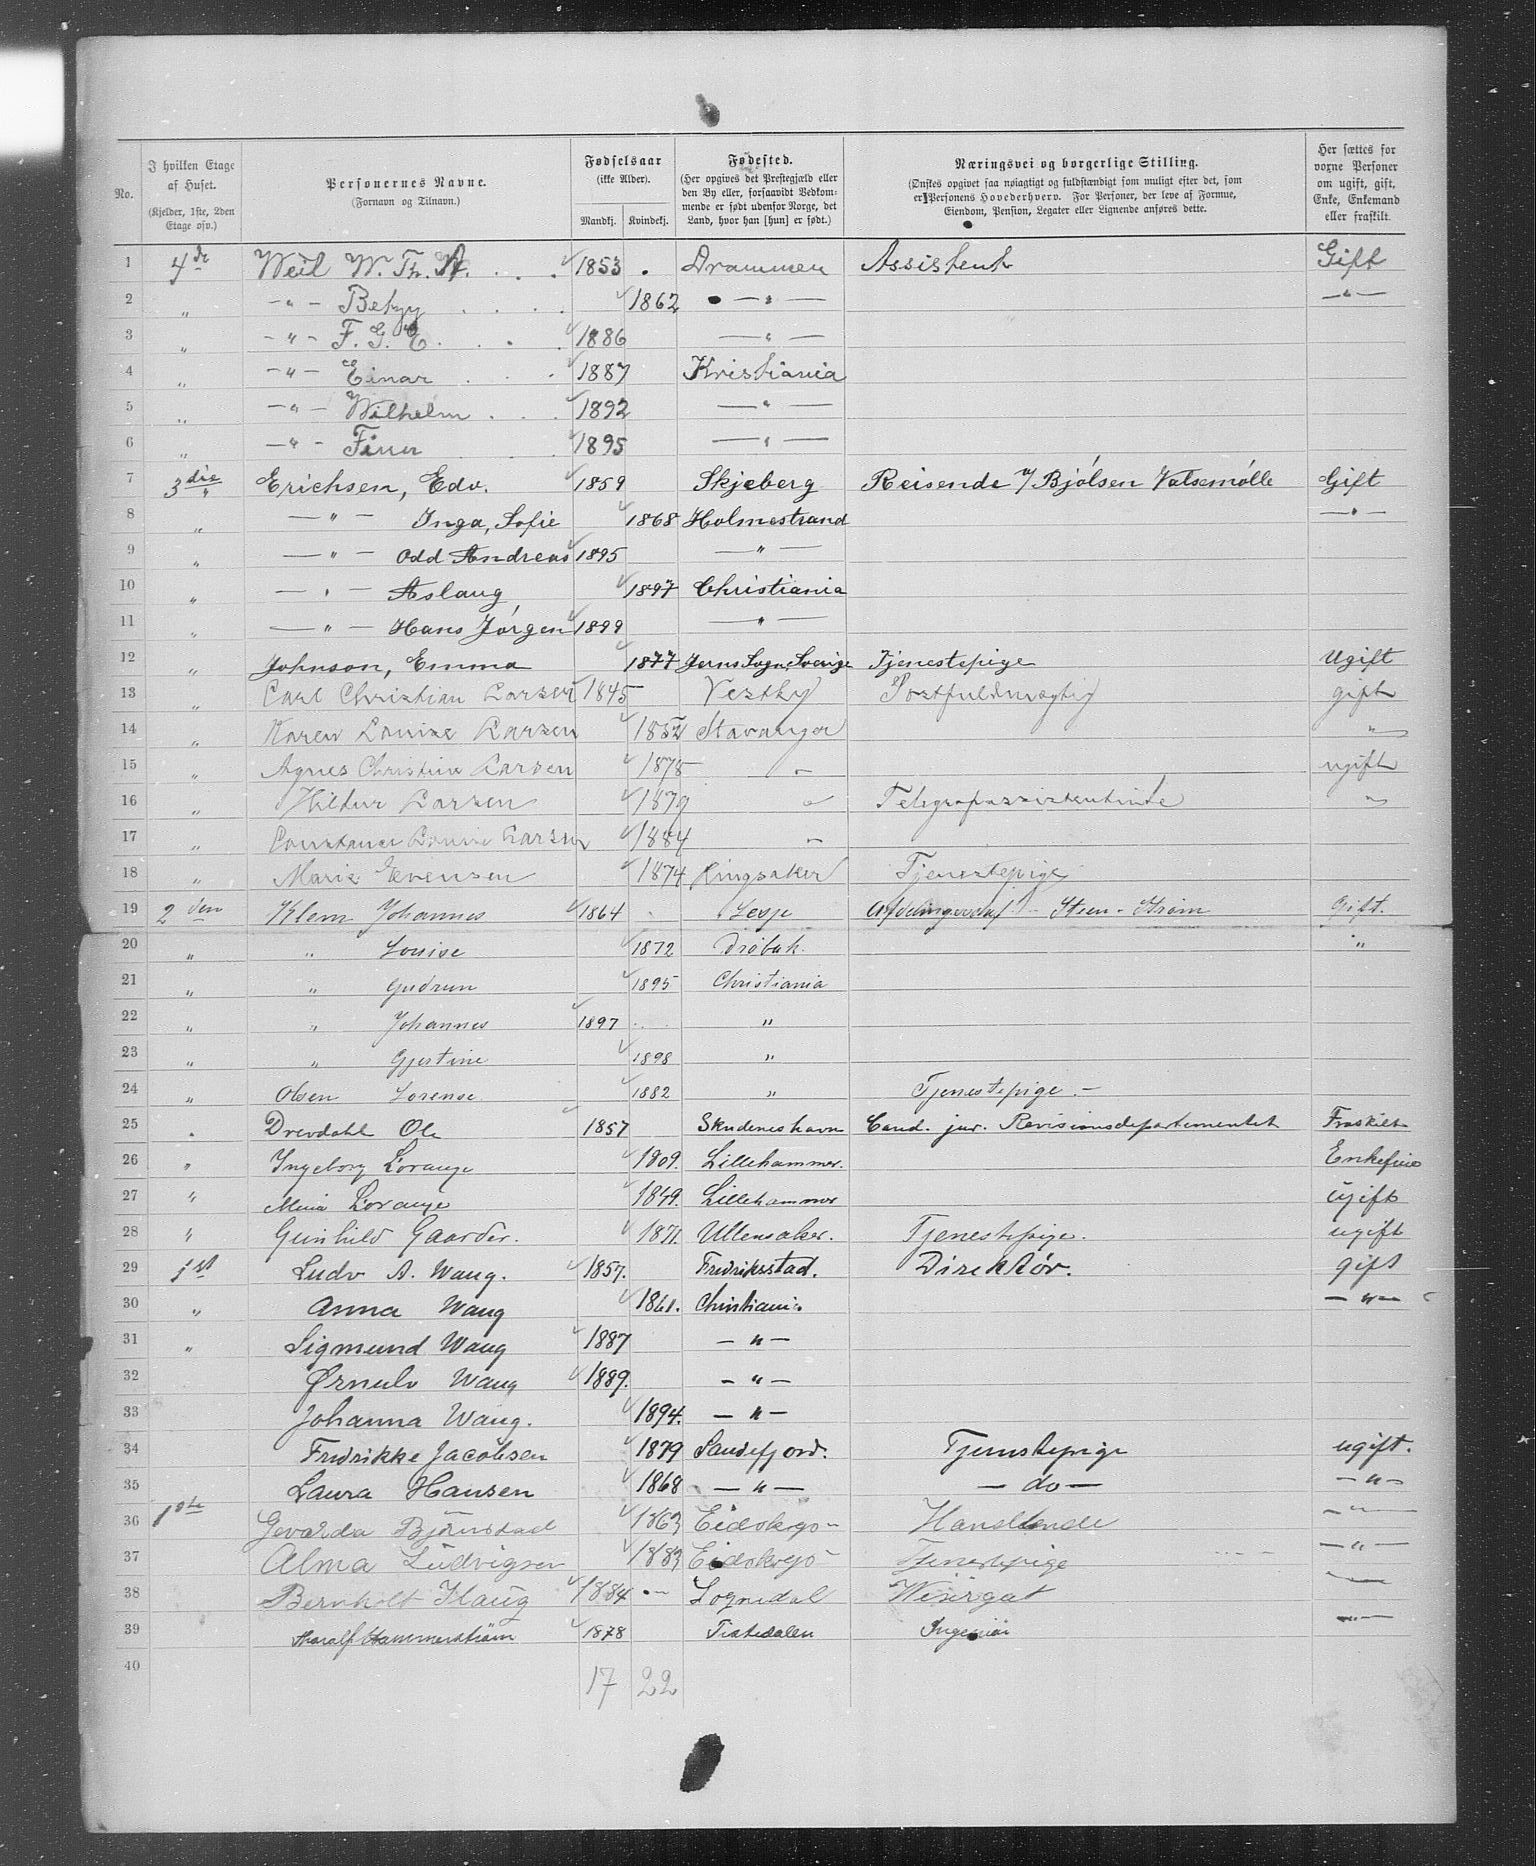 No. | I hvilken Etage af Huset. (Kjelder, 1ste, 2den Etage osv.) | Personernes Navne. (Fornavn og Tilnavn.) | Fødselsaar (ikke Alder). Mandkj. Kvindekj. | Fødested. (Her opgives det Prestegjæld eller den By eller, forsaavidt Vedkommende er født udenfor Norge, det Land, hvor han [hun] er født.) | Næringsvei og borgerlige Stilling. (Ønskes opgivet saa nøiagtigt og fuldstændigt som muligt efter det, som er Personens Hovederhverv. For Personer, der leve af Formue, Eiendom, Pension, Legater eller Lignende anføres dette.) | Her sættes for voxne Personer om ugift, gift, Enke, Enkemand eller fraskilt.
1 4de Weil W. Th. A. 1853 Drammen Assistent Gift
2 " -"- Betzy 1862 -"- -"-
3 " -"- F. G. E. 1886 -"-
4 " -"- Einar 1887 Kristiania
5 " -"- Wilhelm 1892 -"-
6 " -"- Finn 1895 -"-
7 3die Erichsen, Edv. 1859 Skjeberg Reisende v/ Bjølsen Valsemølle Gift
8 " -"- Inga, Sofie 1868 Holmestrand -"-
9 " -"- Odd Andreas 1895 -"-
10 " -"- Aslaug 1897 Christiania
11 " -"- Hans Jørgen 1899 -"-
12 " Johnson, Emma 1877 Sogn, Sverige Tjenestepige Ugift
13 " Carl Christian Larsen 1845 Vestby Postfuldmægtig gift
14 " Karen Louise Larsen 1852 Stavanger "
15 " Agnes Christine Larsen 1878 " ugift
16 " Hildur Larsen 1879 " Telegrafassistentinde "
17 " Constance Louise Larsen 1884 "
18 " Marie Evensen 1874 Ringsaker Tjenestepige
19 2den Klem Johannes 1864 Lesje Steen - Strøm Gift.
20 " " Louise 1872 Drøbak. "
21 " " Gudrun 1895 Christiania
22 " " Johannes 1897 "
23 " " Gjertine 1898 "
24 " Olsen Lorense 1882 " Tjenestepige -
25 Drevdahl Ole 1857 Skudeneshavn Cand. jur. Revisionsdepartementet Fraskilt
26 " Ingeborg Lorange 1809. Lillehammer. Enkefrue
27 " Mina Lorange 1849. Lillehammer Ugift
28 " Gunhild Gaarder. 1871. Ullensaker. Tjenestepige. ugift
29 1st Ludv A. Waug. 1857. Fredriksstad. Direktør. gift
30 " Anna Waug 1861. Christiania -"-
31 " Sigmund Waug 1887 -"-
32 Ørnulv Waug 1889. -"-
33 Johanna Waug. 1894. -"-
34 Fredrikke Jacobsen 1879 Sandefjord. Tjenstepige ugift.
35 Laura Hansen 1868 -"- -do- -"-
36 1ste Gevarda Bjørnstad 1863 Eidskogo Handlende -"-
37 Alma Ludvigsen 1883 Eidskogo Tjenestepige -"-
38 Bernholt Haug 1884 Sogndal Visergut
39 Tharalf Hammerstrøm 1878 Tistedalen Ingeniør -"-
40 17 22